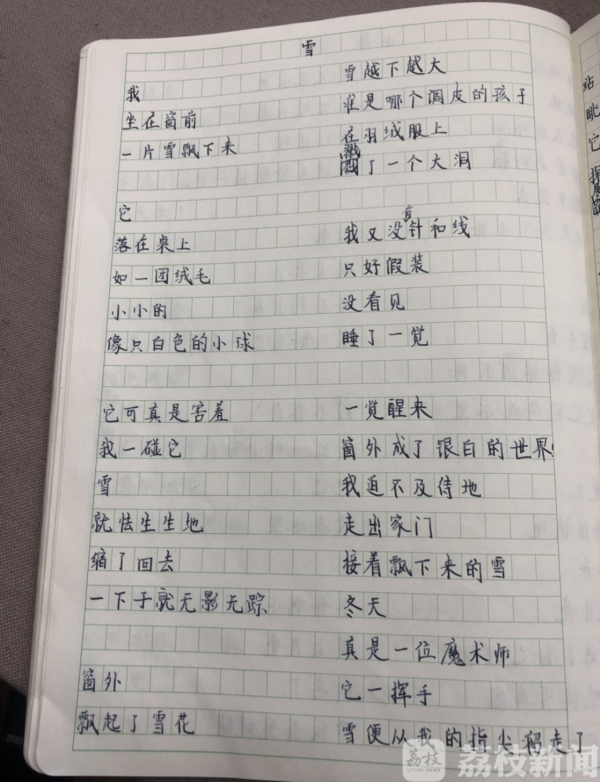 雪
我
坐在窗前
一片雪飘下来
它
落在桌上
如一团绒毛
小小的
像只白色的小球
它可真是害羞
我一碰它
雪
就怯生生地
缩了回去
一下子就无影无踪
窗外
飘起了雪花
雪越下越大
谁是哪个调皮的孩子
在羽绒服上
戳了一个大洞
我又没有针和线
只好假装
没看见
睡了一觉
一觉醒来
窗外成了银白的世界
我迫不及待地
走出家门
接着飘下来的雪
冬天
真是一位魔术师
它一挥手
雪便从我的指尖溜走了
站
眺
它
荔枝
荔枝新闻